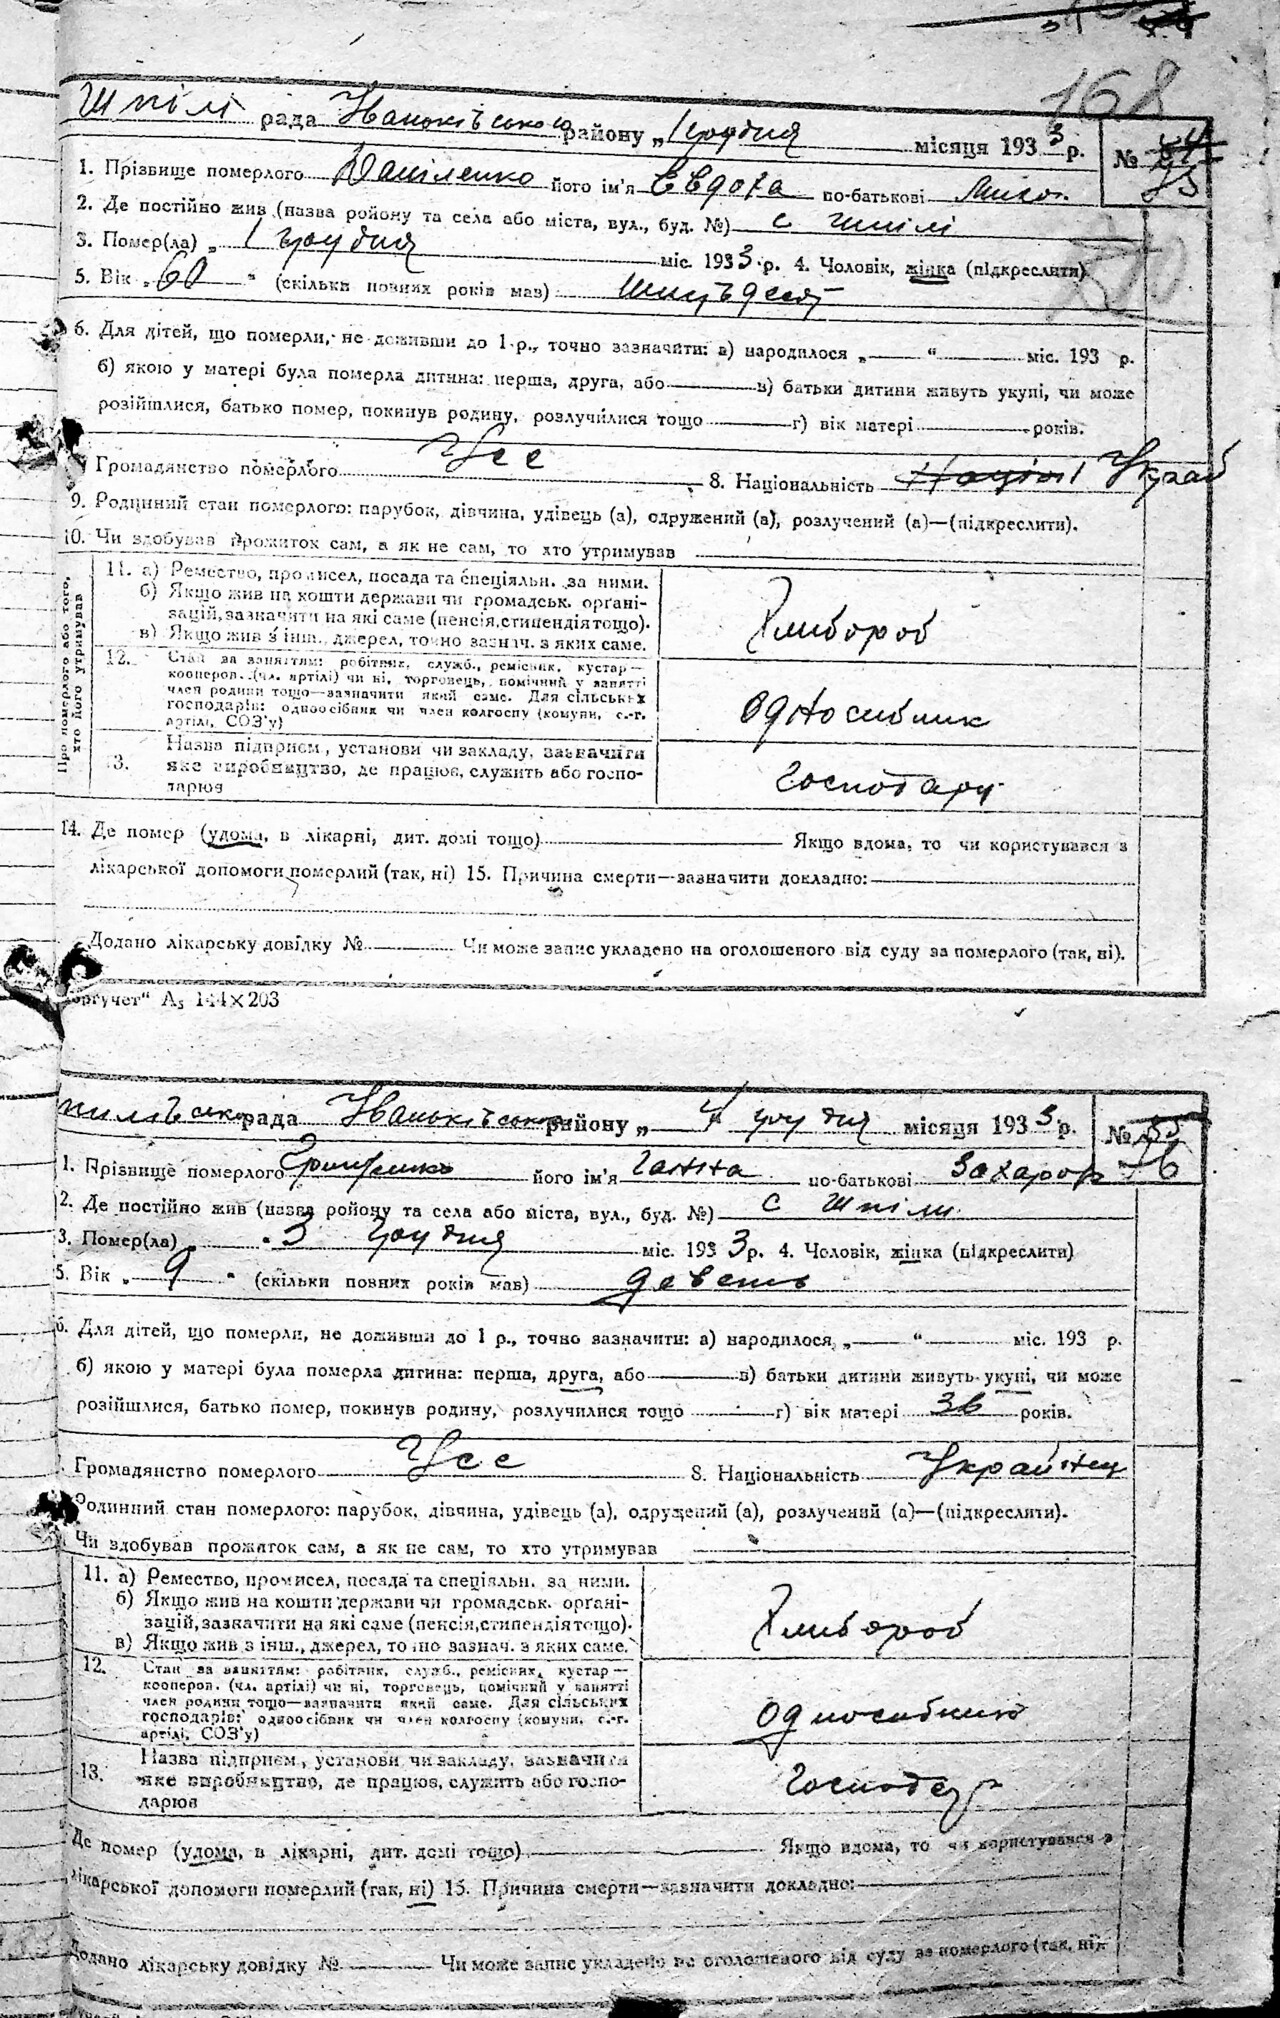 168
Шпілі рада Іваньківського району „1 грудня місяця 1933 р. № 84 85
1. Прізвище померлого Даніленко його ім'я Євдоха по-батькові Микол.
2. Де постійно жив (назва ройону та села або міста, вул., буд. №) с Шпілі
3. Помер(ла) „ 1 грудня міс. 1933 р. 4. Чоловік, жінка (підкреслити)
5. Вік „60“ (скільки повних років мав) шицьдесят
6. Для дітей, що померли, не доживши до 1 р., точно зазначити: а) народилося „ “ міс. 193 р.
б) якою у матері була померла дитина: перша, друга, або в) батьки дитини живуть укупі, чи може
розійшлися, батько помер, покинув родину, розлучилися тощо г) вік матері років.
Громадянство померлого Усс 8. Національність Націон Украй
9. Родинний стан померлого: парубок, дівчина, удівець (а), одружений (а), розлучений (а)—(підкреслити).
10. Чи здобував прожиток сам, а як не сам, то хто утримував
Про померлого або того, хто його утримував
11. а) Ремество, промисел, посада та спеціяльн. за ними.
б) Якщо жив на кошти держави чи громадськ. орґані-
зацій, зазначити на які саме (пенсія, стипендія тощо).
в) Якщо жив з інш., джерел, точно зазнач. з яких саме.
Хлибороб
12. Стан за заняттям: робітник, служб., ремісник, кустар—
кооперов. (чл. артілі) чи ні, торговець, помічний у занятті
член родини тощо—зазначити який саме. Для сільських
господарів: одноосібник чи член колгоспу (комуни, с.-г.
артілі, СОЗ'у)
Односибник
13. Назва підприєм., установи чи закладу, зазначити
яке виробництво, де працює, служить або госпо-
дарює
Господару
14. Де помер (удома, в лікарні, дит. домі тощо) Якщо вдома, то чи користувався з
лікарської допомоги померлий (так, ні) 15. Причина смерти—зазначити докладно:
Додано лікарську довідку № Чи може запис укладено на оголошеного від суду за померлого (так, ні).
оргучет“ А₅ 144×203
рада Іваньківського району „ 4 грудня місяця 1933 р. № 85 86
1. Прізвище померлого Грищенко його ім'я Ганна по-батькові Захаров
2. Де постійно жив (назва ройону та села або міста, вул., буд. №) с Шпіли
3. Помер(ла) „ 3 грудня міс. 1933 р. 4. Чоловік, жінка (підкреслити)
5. Вік „ 9 “ (скільки повних років мав) девєть
6. Для дітей, що померли, не доживши до 1 р., точно зазначити: а) народилося „ “ міс. 193 р.
б) якою у матері була померла дитина: перша, друга, або в) батьки дитини живуть укупі, чи може
розійшлися, батько помер, покинув родину, розлучилися тощо г) вік матері 36 років.
Громадянство померлого Усс 8. Національність Українец
Родинний стан померлого: парубок, дівчина, удівець (а), одружений (а), розлучений (а)—(підкреслити).
Чи здобував прожиток сам, а як не сам, то хто утримував
11. а) Ремество, промисел, посада та спеціяльн. за ними.
б) Якщо жив на кошти держави чи громадськ. орґані-
зацій, зазначити на які саме (пенсія, стипендія тощо).
в) Якщо жив з інш., джерел, точно зазнач. з яких саме.
Хлибороб
12. Стан за заняттям: робітник, служб., ремісник, кустар—
кооперов. (чл. артілі) чи ні, торговець, помічний у занятті
член родини тощо—зазначити який саме. Для сільських
господарів: одноосібник чи член колгоспу (комуни, с.-г.
артілі, СОЗ'у)
Односибник
13. Назва підприєм., установи чи закладу, зазначити
яке виробництво, де працює, служить або госпо-
дарює
Господар
Де помер (удома, в лікарні, дит. домі тощо) Якщо вдома, то чи користувався з
лікарської допомоги померлий (так, ні) 15. Причина смерти—зазначити докладно:
Додано лікарську довідку № Чи може запис укладено на оголошеного від суду за померлого (так, ні).